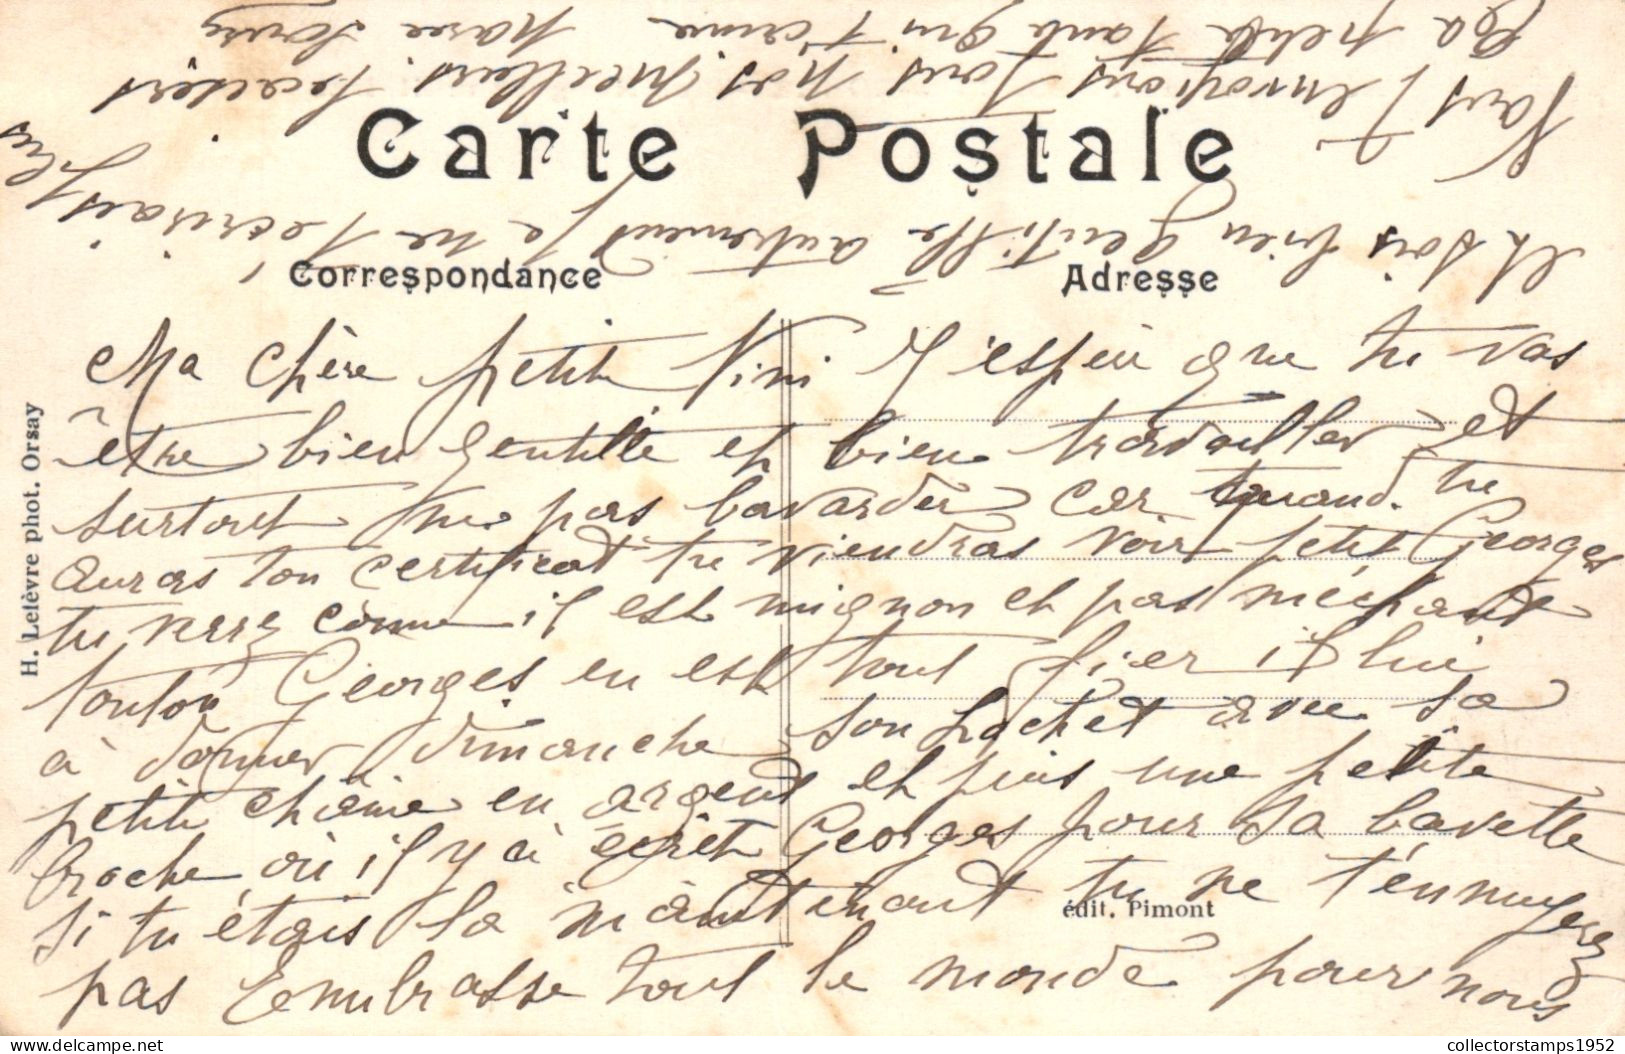 Carte Postale
Correspondance
Adresse
Ma chère petite Nini J'espèir que tu vas
être bien gentille et bien travailler et
surtout ne pas bavarder car quand tu
auras ton certificat tu viendras voir petit Georges
tu verrz comme il est mignon et pas méchant
tonton Georges en est tout fier il lui
à donner dimanche son hochet avec sa
petite chaîne en argent et puis une petite
broche où il y à écrit Georges pour sa bavette
si tu étais la maintenant tu ne t'ennuyerez
pas Embrasse tout le monde pour nous
et sois bien gentille autrement je ne t'écrirais plus
Nous t'envoyons tous nos meilleurs baisers
Ta petite tante qui t'aime
H. Lefèvre phot. Orsay
édit. Pimont
delcampe.net
collectorstamps1952